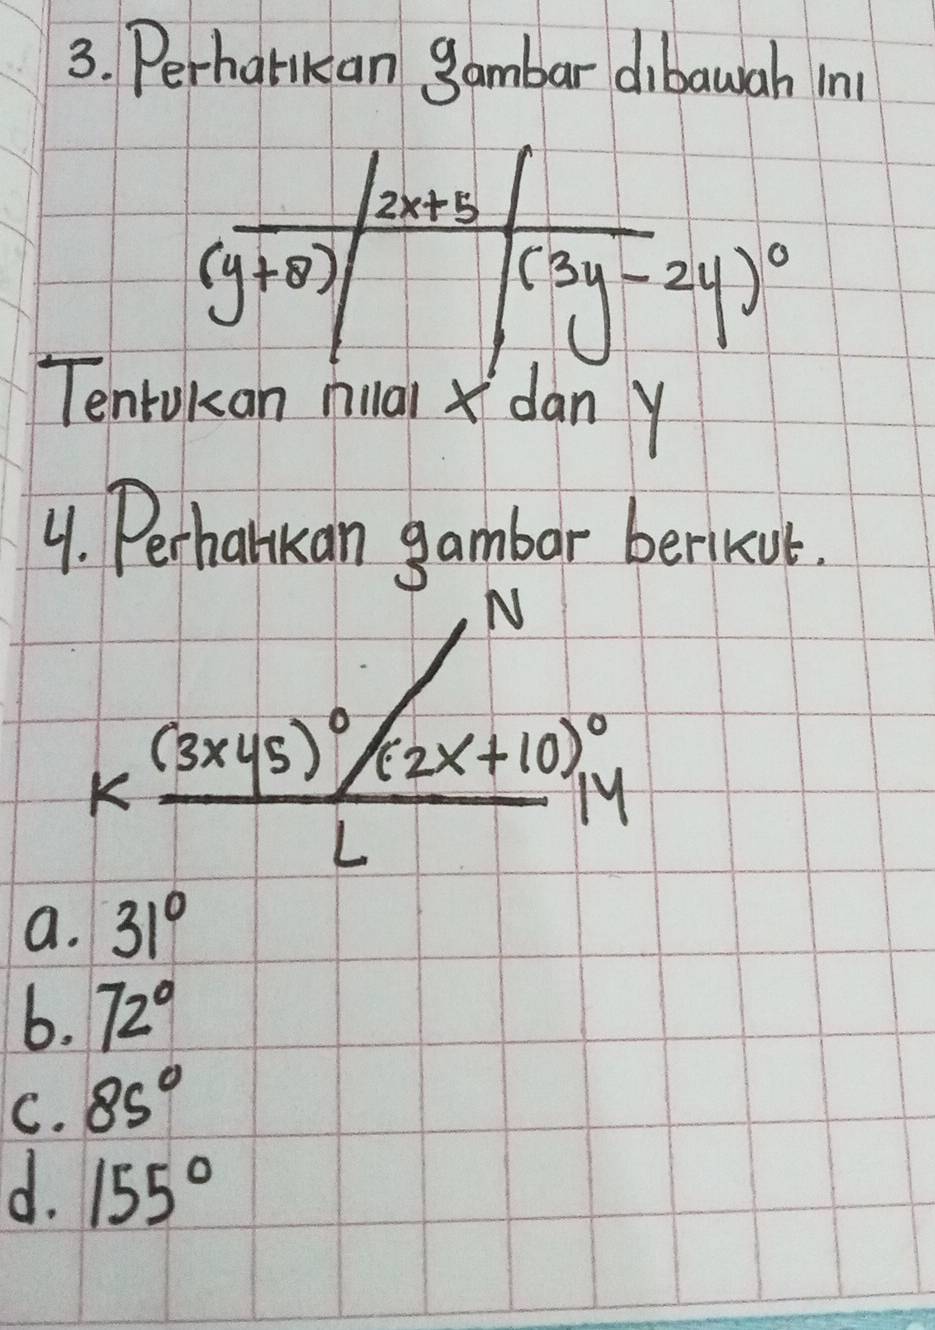 3. Perhatikan gambar dibawah ini
2x+5
(y+8) (3y-2y)°
Tentukan nilai x dan y
4. Perhatikan gambar berikut.
N
(3x45)° (2x+10)°
K M
L
a. 31°
b. 72°
c. 85°
d. 155°